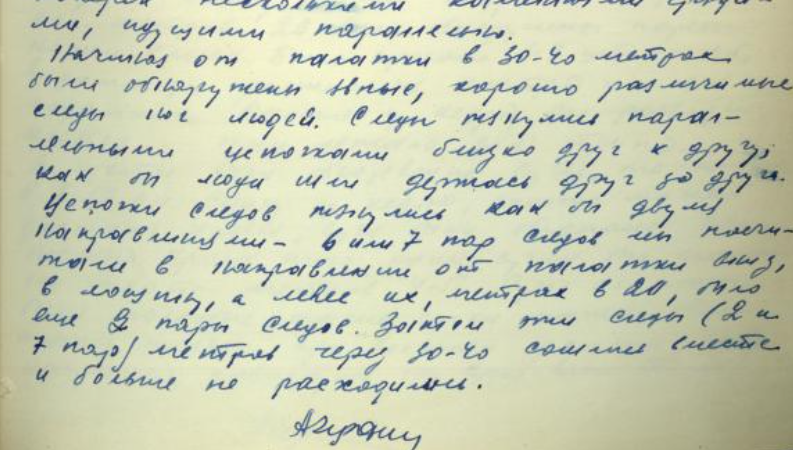 несколькими каменными гряда-
ми, идущими паралельно.
Начиная от палатки в 30-40 метрах
были обнаружены явные, хорошо различимые
следы ног людей. Следы тянулись парал-
лельными цепочками близко друг к другу,
как бы люди шли держась друг за друга.
Цепочки следов тянулись как бы двумя
направлениями - 6 или 7 пар следов мы насчи-
тали в направлении от палатки вниз,
в лощину, а левее их, метрах в 20, было
еще 2 пары следов. Затем эти следы (2 и
7 пар) метров через 30-40 сошлись вместе
и больше не расходились.